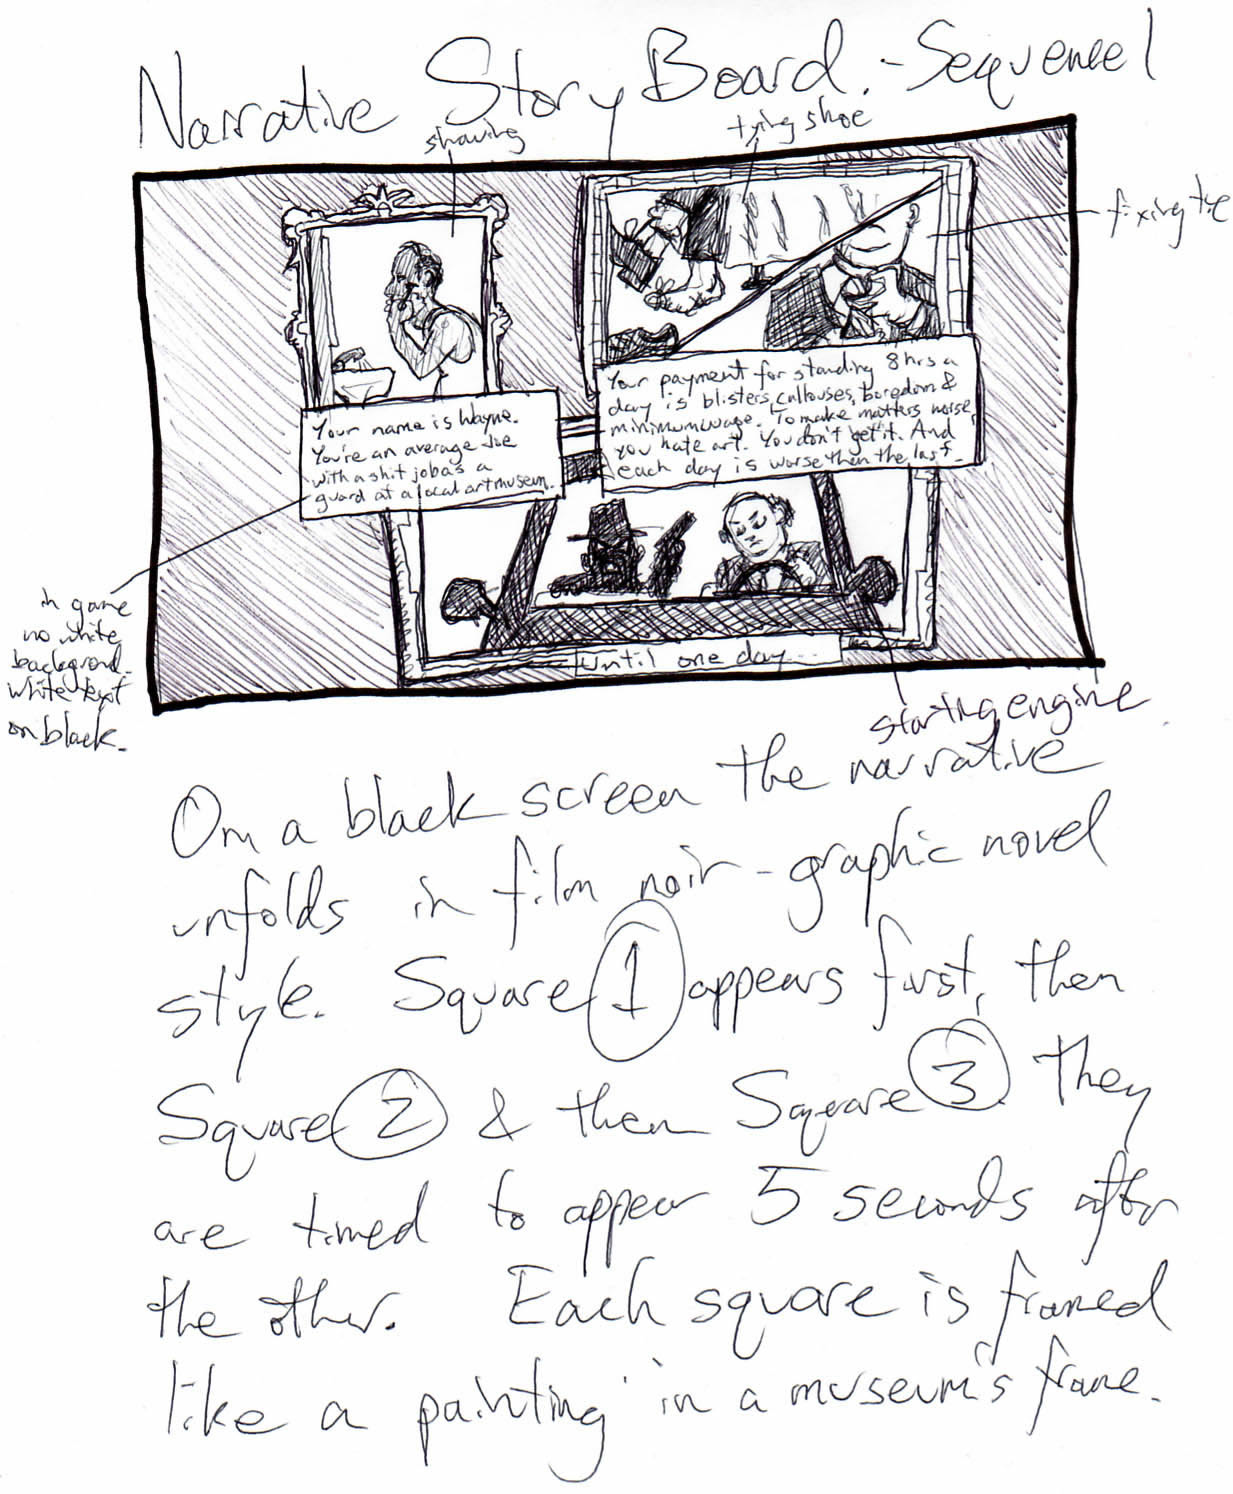 Narrative Story Board - Sequence 1
shaving
tying shoe
fixing tie
Your name is Wayne.
You're an average Joe
with a shit job as a
guard at a local art museum.
Your payment for standing 8 hrs a
day is blisters, callouses, boredom &
minimum wage. To make matters worse,
you hate art. You don't get it. And
each day is worse then the last.
until one day...
in game
no white
background.
white text
on black.
starting engine
On a black screen the narrative
unfolds in film noir - graphic novel
style. Square 1 appears first, then
Square 2 & then Square 3. They
are timed to appear 5 seconds after
the other. Each square is framed
like a painting in a museum's frame.